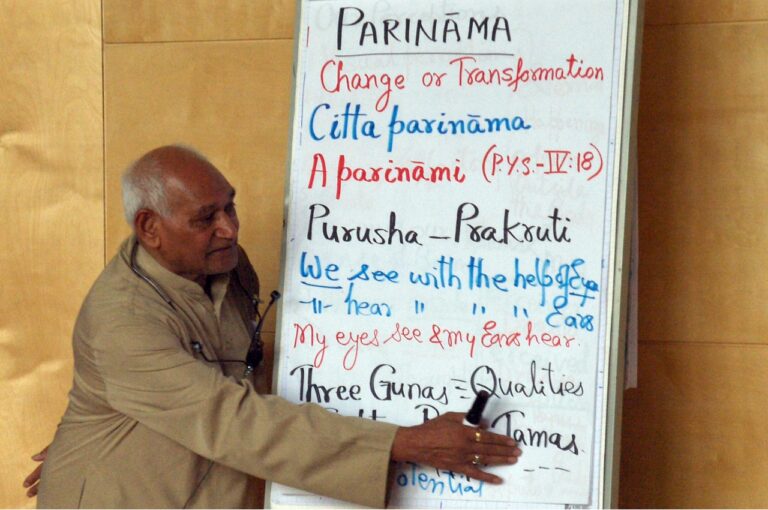 PARINĀMA
Change or Transformation
Citta parināma
Aparināmi (P.Y.S.-IV:18)
Purusha - Prakruti
We see with the help of Eye
-"- hear " " " Ears
My eyes see & my Ears hear.
Three Gunas = Qualities
Tamas.
otential